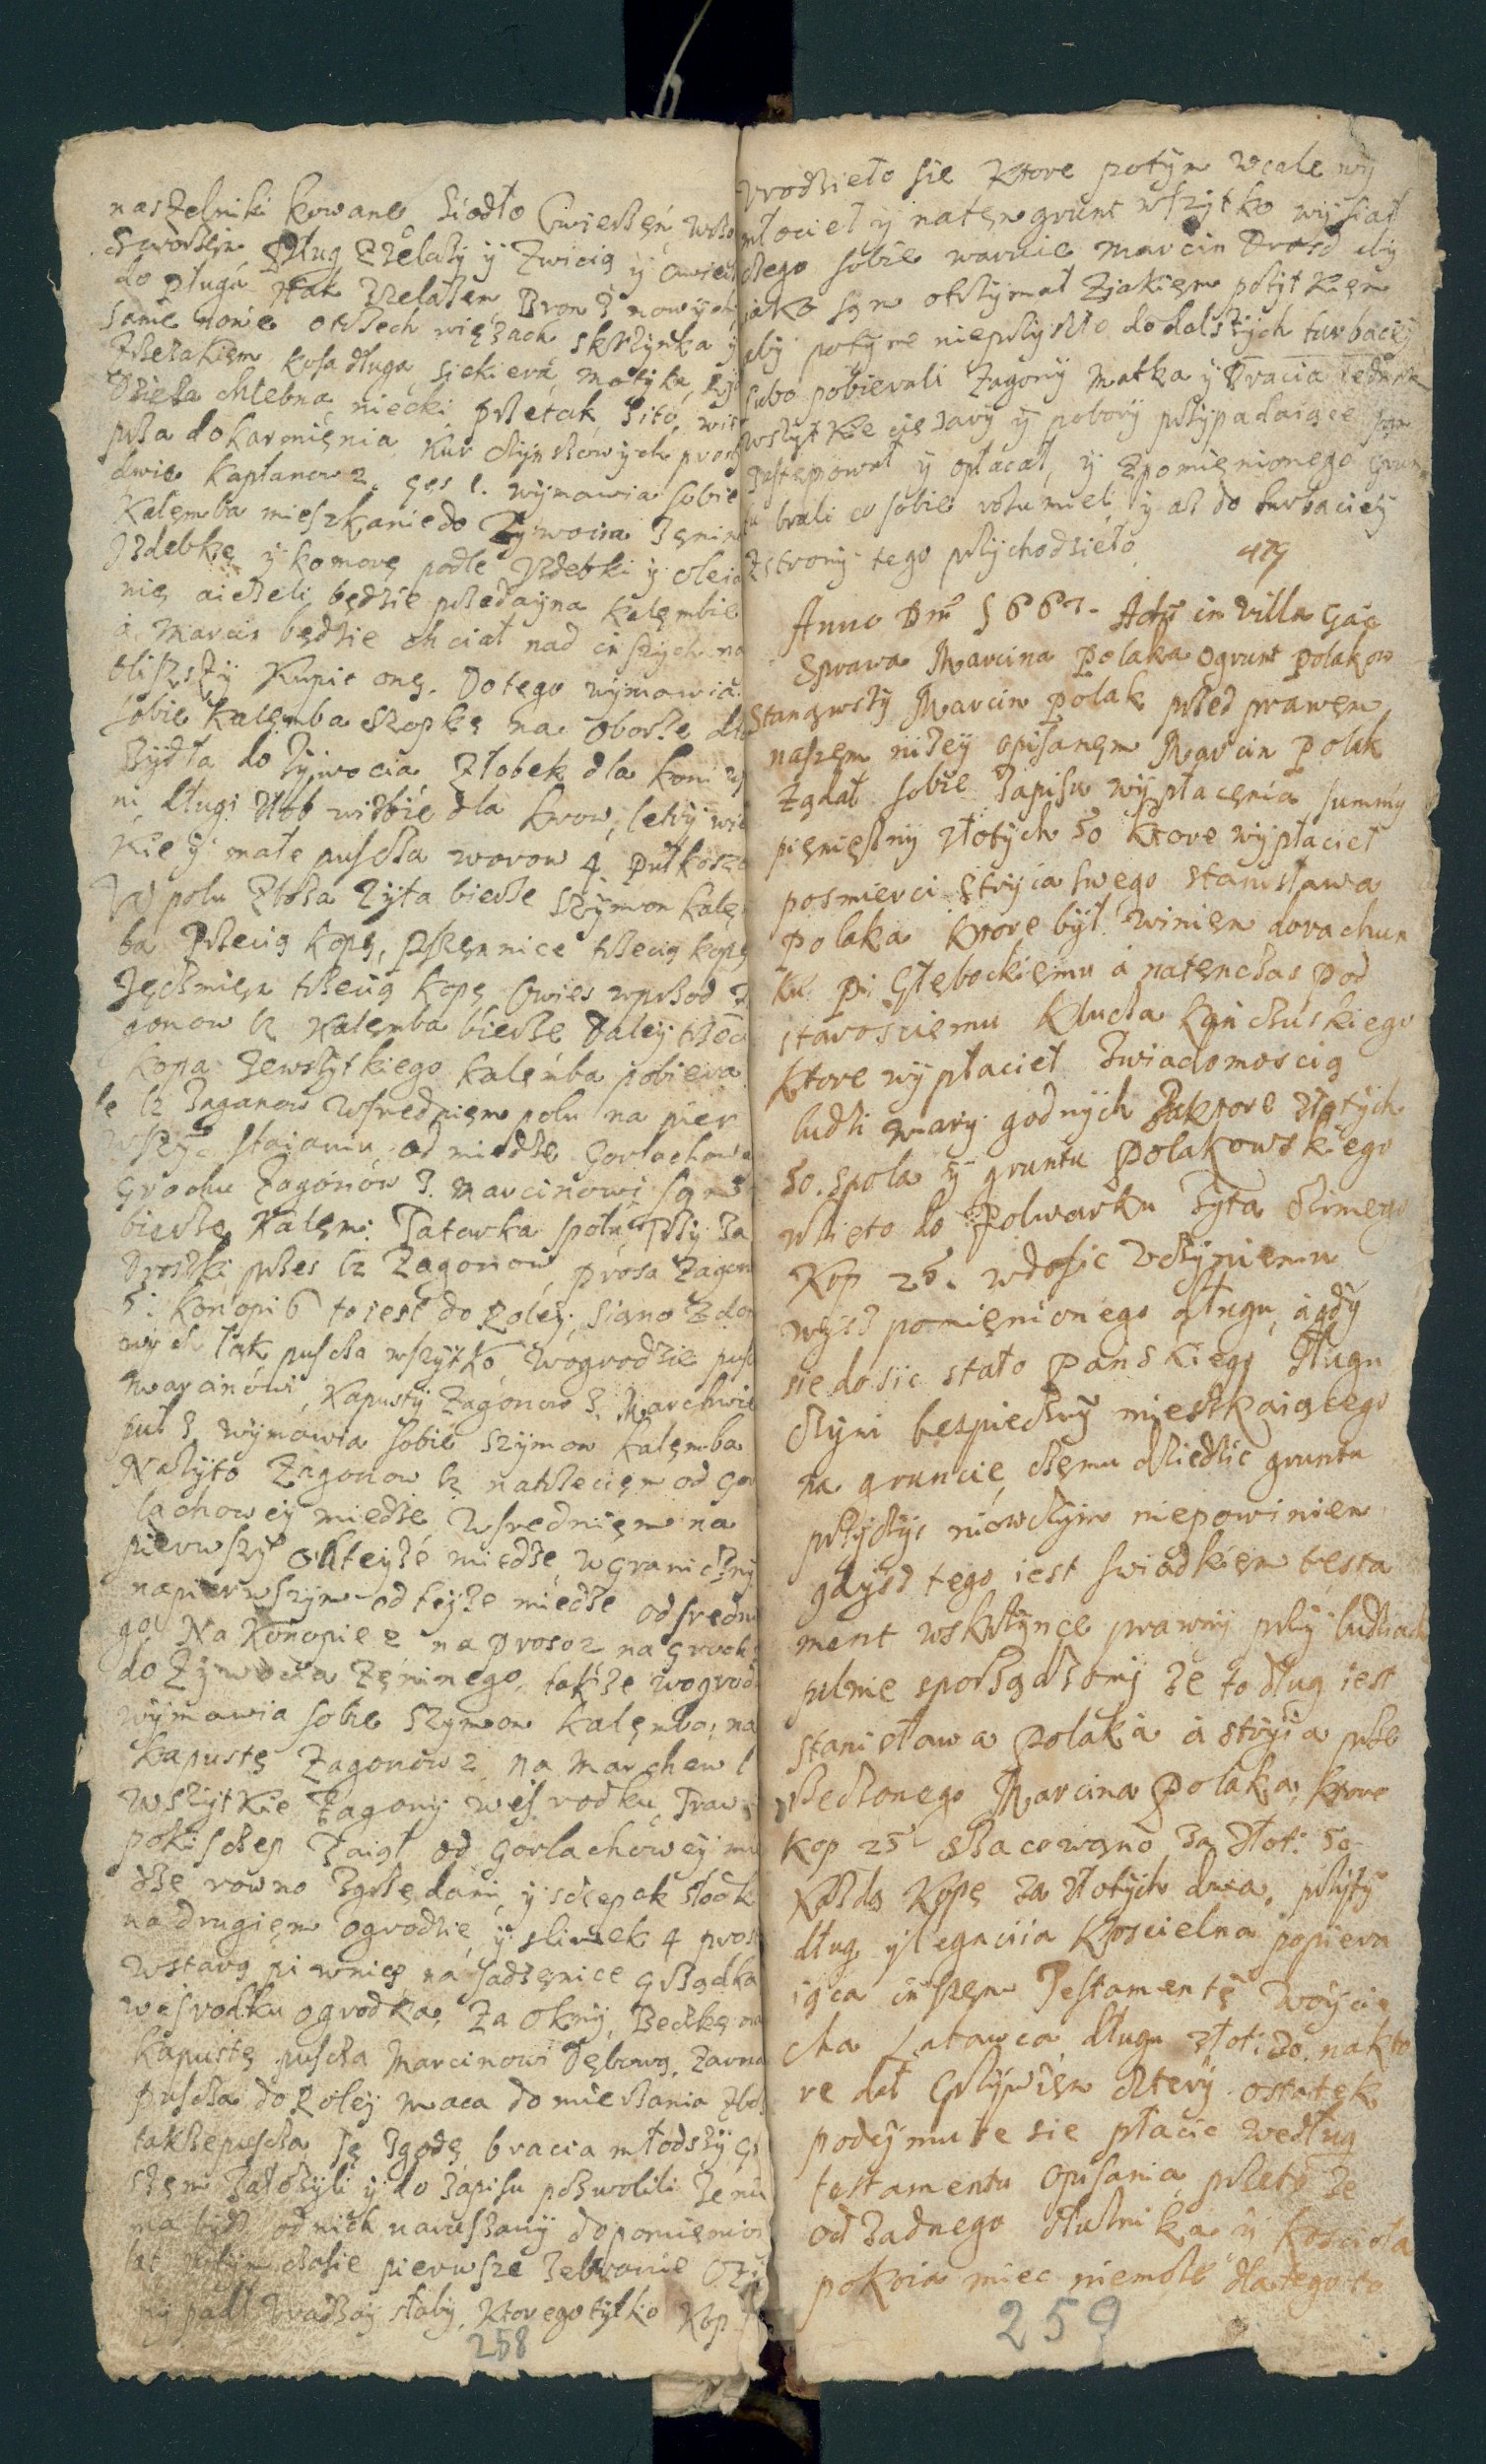 naszelniki kowane, siodło Cwierczeń, wło
sworzen, Pług zzelazy y Zwicią y owies
do pługa Hak zzelazem Bron 3 nowych
same nowe oczech więzach skrzynka y
Zrzezakiem kosa długa, siekiera, motyka, ry
Dzieża chlebna niecki przetak Sito, wi
prza dokarmięnia Kur czynszowych pros
dwie kapłanow 2. gęś 1. wymawia sobie
Kalęmba mieszkanie do Zywocia Zęnin
Izdebkę y komorę podle Izdebki y oleia
nię aiezeli będzie przedayna kalęmbie
a Marcin będzie chciał nad inszych na
bliszszy Kupic onę. Do tego wymawia
sobie Kalęmba szopkę na oborze dla
Bydła do zywocia Złobek dla koni
ni długi Złob wizbie dla krow, letry wie
kie y małe puscza worow 4. Pułkosz
W polu zboza Zyta bierze Szymon kalę
ba trzecią kopę, pszennice trzecią kopę
Jęczmięn trzecią kopę Owies wprzod
gonow 12 Kalęmba bierze Daley trzec
kopa Zewszytkiego kalęmba pobiera
le 12 Zagonow Wsrednięm polu na pier
wszy staianiu od miedze Gorlachow
Grochu Zagonow 3. Marcinowi sąm
bierze Kalęm: Tatarka społu Trzy Za
drozki przes 12 Zagonow, prosa Zagon
5: konopi 6 to iest do Roley, Siano z dom
wych łąk puscza wszytko Wogrodzie pus
Marcinowi, Kapusty Zagonow 3. Marchwie
puł 3 wymawia sobie Szymon kalęmba
Nażyto Zagonow 12 natrzecięm od Gor
lachowey miedze Wsrednięm na
pierwszy odteyze miedze, wgraniczny
napierwszym od teyze miedze od sredn
go Na Konopie 2 na Proso 2 na groch
do Zywocia Zęninego, takze wogrod
wymawia sobie Szymon Kalęmba, na
kapustę Zagonow 2 na Marchew 1
Wszytkie Zagony wesrodku, Traw
pokisczep Zaiął od Gorlachowey mie
dze rowno Zgrzędami y szczepek słodk
na drugięm ogrodzie, y sliwek 4 pros
Wstarą piwnicę na sadzęnice grządka
wesrodku ogrodka, Za okny, Beczkę na
kapustę puscza Marcinowi Dębową, Zarna
puscza do Roley Maca do mierzania zboz
takze puscza Tę Zgodę bracia młodszy G
szęm załozyli y do Zapisu pozwolili Ze nie
ma bydz odnich naruszany do pomienion
lat Wtym czasie pierwsze Zebranie Ozi
ny padł Vrodzay słaby, ktorego tylko kop
258
vrodzieło sie ktore potym wcale wy
młocieł y natęn grunt wszytko wysiał
czego sobie waruie Marcin Drozd aby
iako sąm otrzymał Zjakięm pozytkięm
aby potym nieprzyszło do dalszych turbaciey
lubo pobierali Zagony Matka y Bracia iednak
wszytkie cięzary y pobory przypadaiące sąm
Zastępował y opłacał, y zpomięnionego grun
tu brali co sobie rozumieli y az do turbaciey
Zstrony tego przychodzieło.
479
Anno Dni 1667. Actu in Villa Gać
Sprawa Marcina Polaka ogrunt Polakow
Stanąwszy Marcin Polak przed prawem
naszem nizey opisanęm Marcin Polak
ządał sobie Zapisu wypłacęnia summy
pięnięzny złotych 50 ktore wypłacieł
posmierci Stryia swego Stanisława
Polaka ktore był winięn dorachun
ku Pi: Głębockięmu a natenczas Pod
starosciemu klucza Kąnczuskiego
ktore wypłacieł Zwiadomoscią
ludzi wiary godnych Zaktore złotych
50. społa y gruntu Polakowskiego
wzięto do Folwarku Zyta Ozimego
Kop 25. wdosic Vczynięniu
wysz pomięnionego długu, a gdy
sie dosic stało Panskiego długu
czyni bezpieczny mieszkaiącego
na gruncie, częmu dziedzic gruntu
przyczyc nioczym niepowinien
gdysz tego iest swiadkięm testa
ment wskrzynce prawny przy ludziach
pilnie sporządzony ze to dług iest
Stanisława Polaka a stryia prze
rzeczonego Marcina Polaka, ktore
kop 25 szacowano za złot: 50
kazdą Kopę za złotych dwa, przyty
dług y legaciia koscielna popiera
iąca inszem Testamentę Woycie
cha Latawca długu złot: 20. nakto
re dał Grzywien cztery ostatek
podeymuie sie płacic według
testamentu opisania, przeto ze
od zadnego dłuznika y kosciola
pokoia miec niemoze dlatego to
259